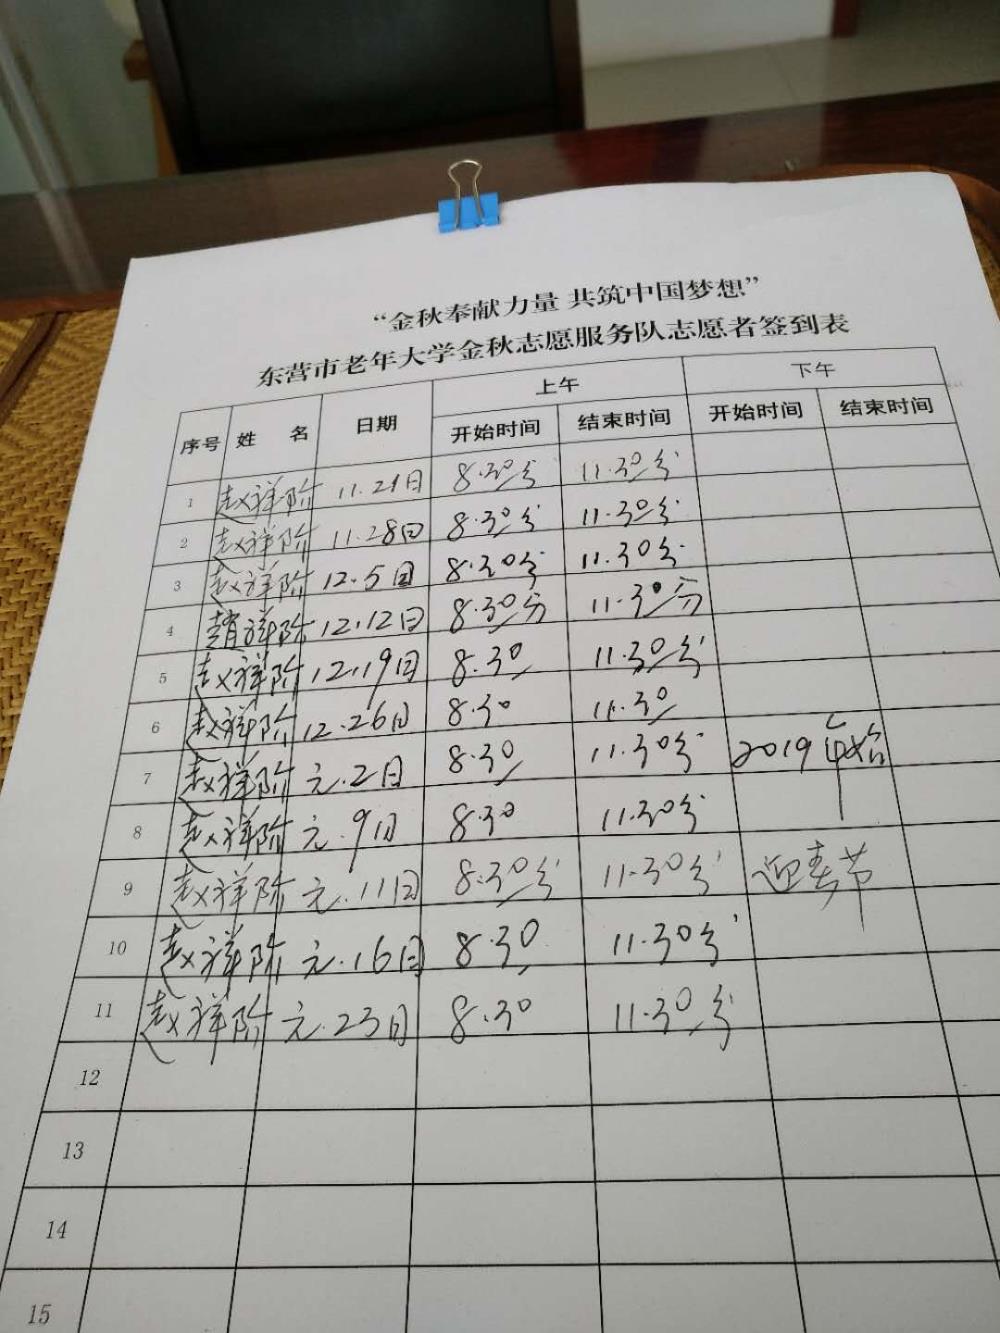 “金秋奉献力量 共筑中国梦想”
东营市老年大学金秋志愿服务队志愿者签到表
序号 姓 名 日期 上午 下午
开始时间 结束时间 开始时间 结束时间
1 赵祥阶 11.21日 8.30分 11.30分
2 赵祥阶 11.28日 8.30分 11.30分
3 赵祥阶 12.5日 8.30分 11.30分
4 趙祥阶 12.12日 8.30分 11.30分
5 赵祥阶 12.19日 8.30 11.30分
6 赵祥阶 12.26日 8.30 11.30
7 赵祥阶 元.2日 8.30 11.30分 2019年始
8 赵祥阶 元.9日 8.30 11.30分
9 赵祥阶 元.11日 8.30分 11.30分 迎春节
10 赵祥阶 元.16日 8.30 11.30分
11 赵祥阶 元.23日 8.30 11.30分
12
13
14
15